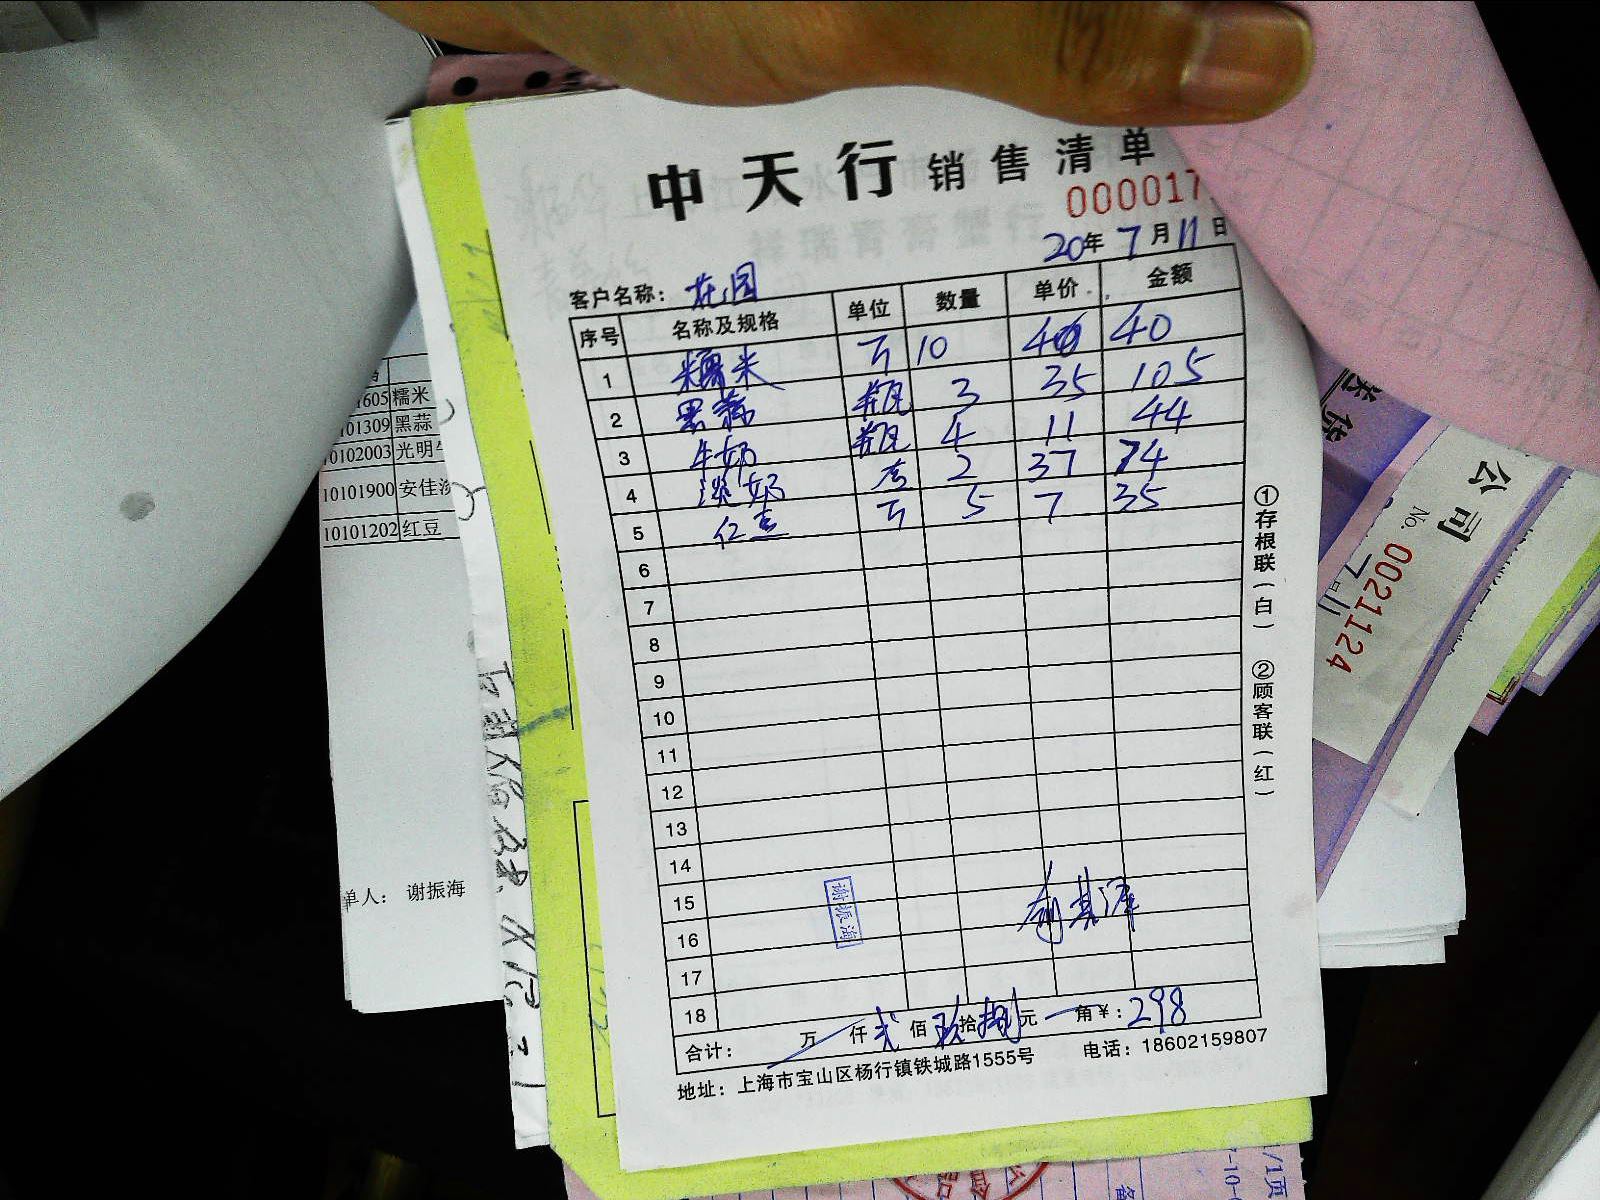 中天行 销售清单
000017
20年 7月 11日
客户名称: 花园
序号 名称及规格 单位 数量 单价 金额
1 糯米 斤 10 4 40
2 黑蒜 瓶 3 35 105
3 牛奶 瓶 4 11 44
4 淡奶 2 37 74
5 红豆 斤 5 7 35
6
7
8
9
10
11
12
13
14
15
16
17
18
谢振海
合计: 万 仟 贰 佰 玖 拾 捌 元 角 ¥: 298
地址: 上海市宝山区杨行镇铁城路1555号 电话: 18602159807
①存根联(白) ②顾客联(红)
1605 糯米
101309 黑蒜
10102003 光明
10101900 安佳
10101202 红豆
单人: 谢振海
公司
No. 0021124
1/1页